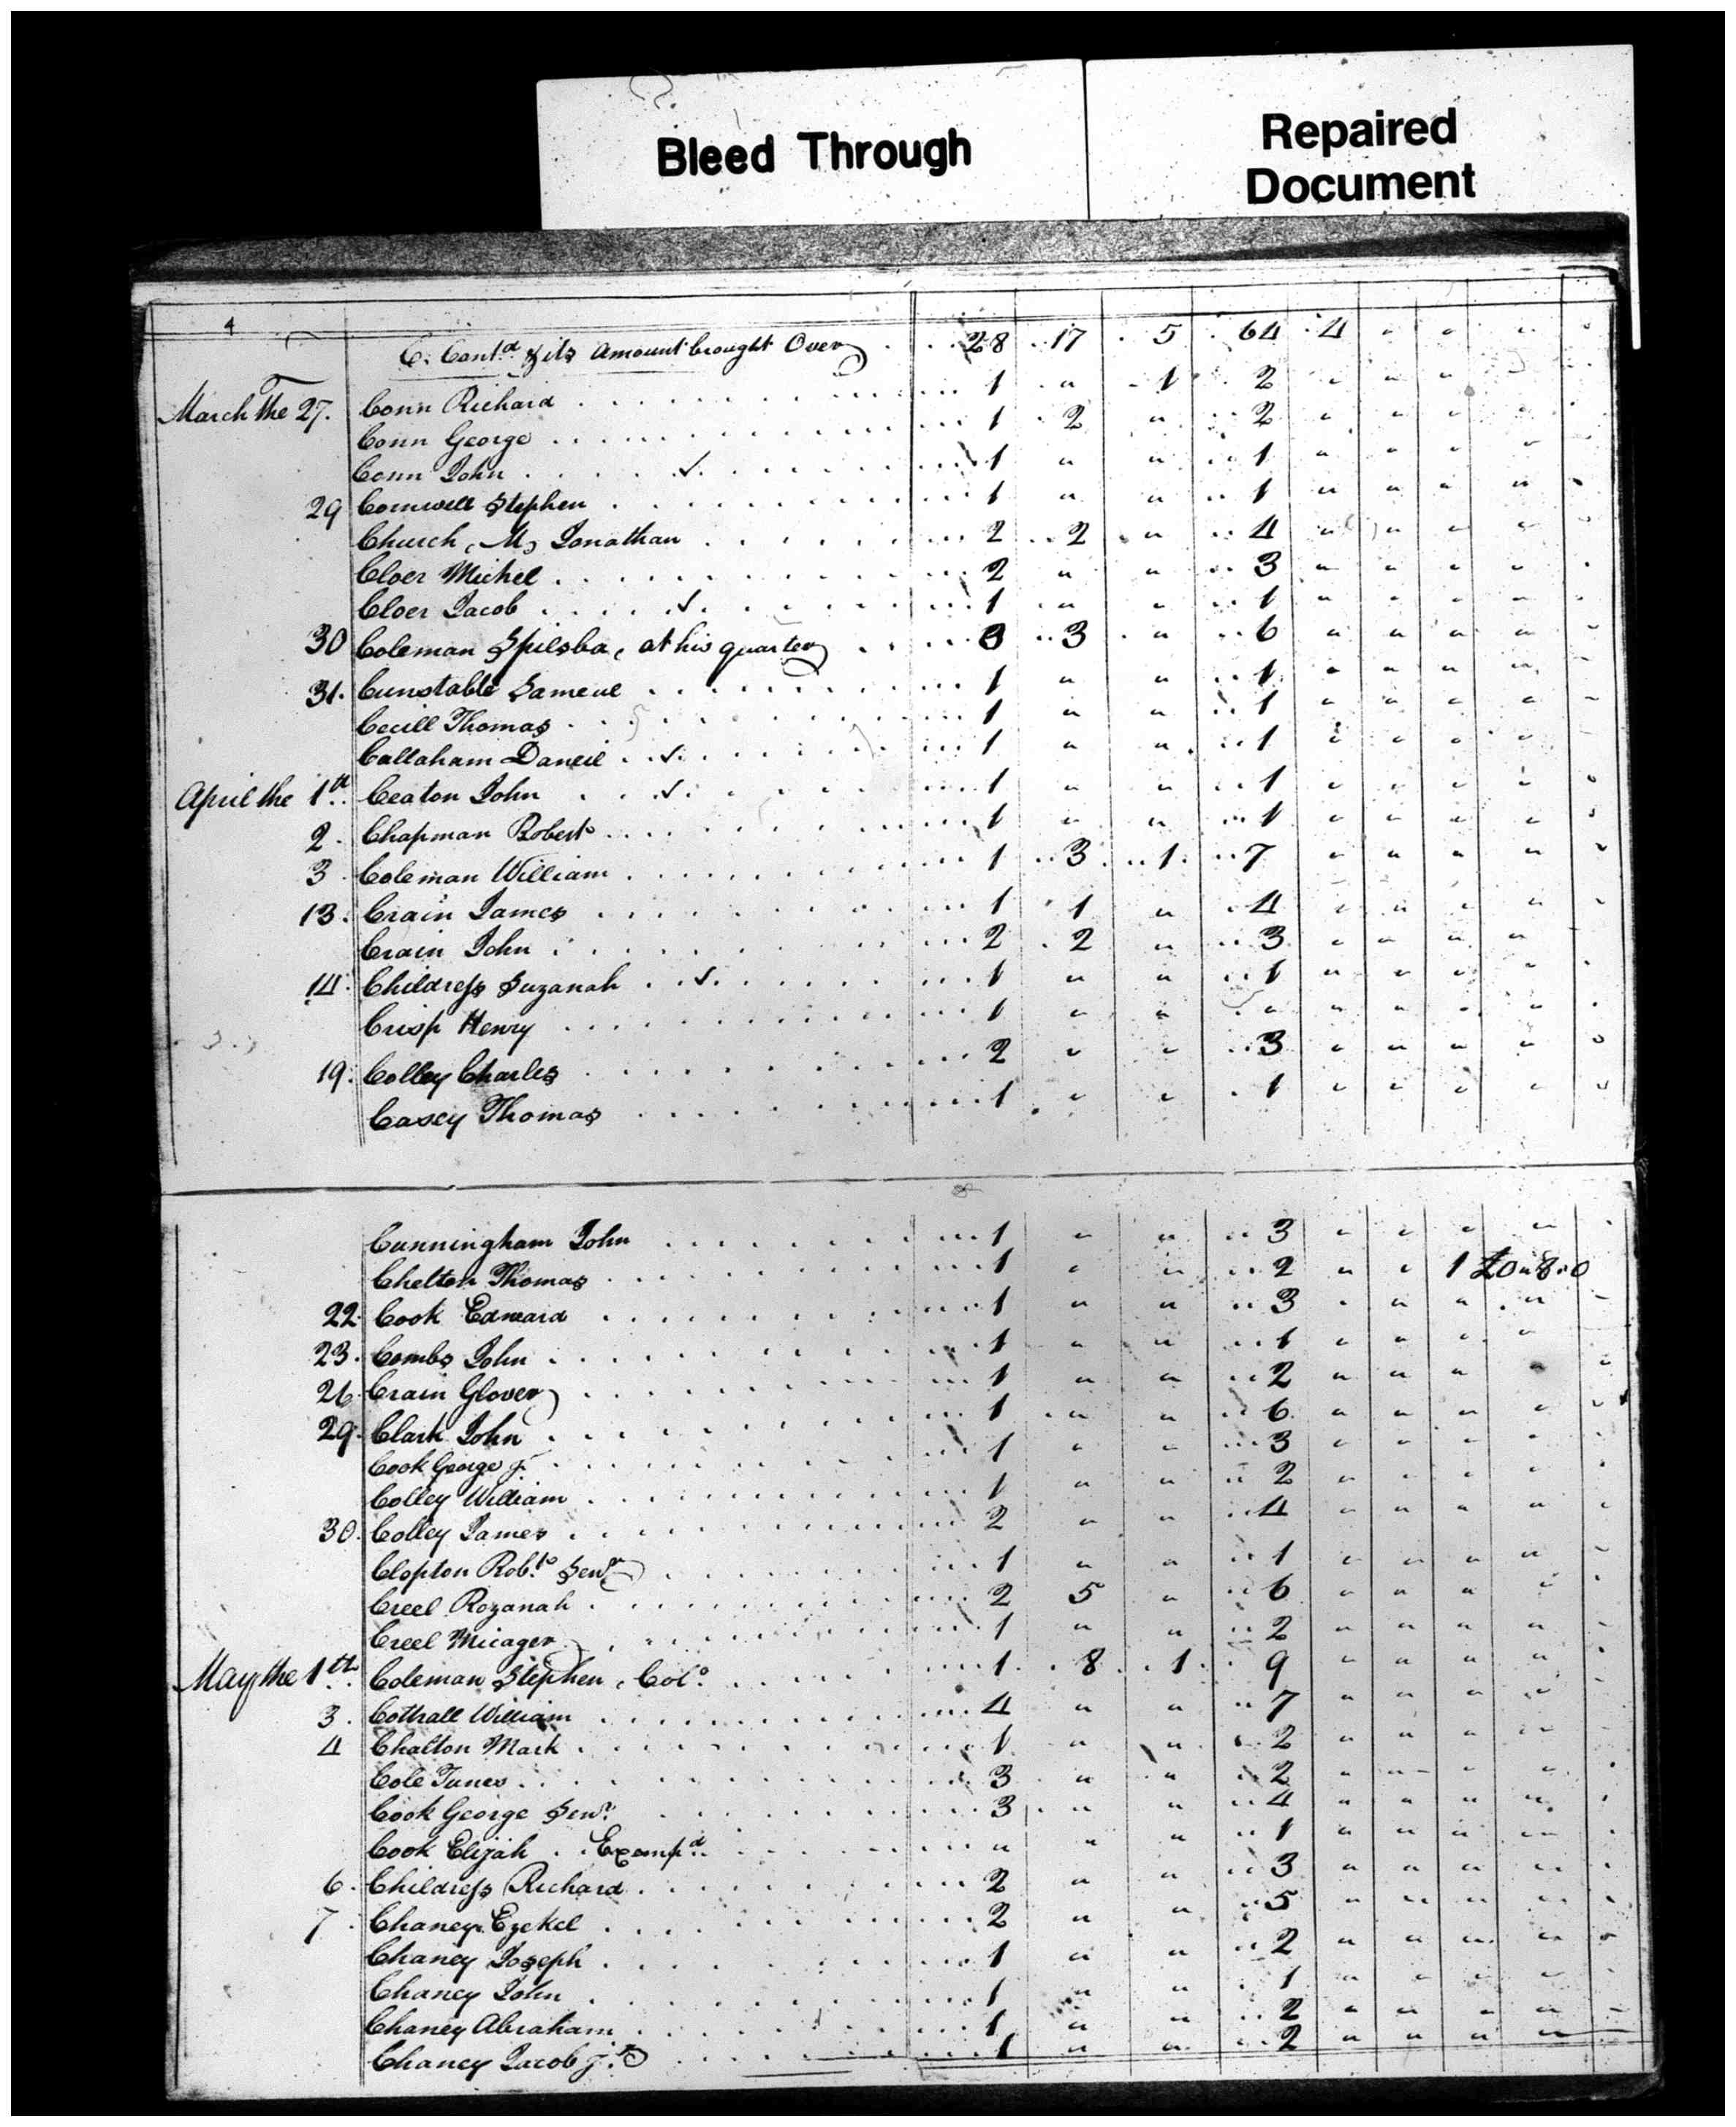 Bleed Through
Repaired
Document
4
C. Cont.d & its Amount brought Over 28 17 5 64 4 " " " "
March The 27. Conn Richard 1 " 1 2 " " " "
Conn George 1 2 " 2 " " " "
Conn John ✓ 1 " " 1 " " " "
29 Cornwell Stephen 1 " " 1 " " " "
Church, M, Jonathan 2 2 " 4 " " " "
Cloer Michel 2 " " 3 " " " "
Cloer Jacob ✓ 1 " " 1 " " " "
30 Coleman Spilsba, at his quarter 3 3 " 6 " " " "
31. Cunstable Sameul 1 " " 1 " " " "
Cecill Thomas 1 " " 1 " " " "
Callaham Daneil ✓ 1 " " 1 " " " "
April the 1th Ceaton John ✓ 1 " " 1 " " " "
2. Chapman Robert 1 " " 1 " " " "
3 Coleman William 1 3 1 7 " " " "
13. Crain James 1 1 " 4 " " " "
Crain John 2 2 " 3 " " " "
14. Childress Suzanah ✓ 1 " " 1 " " " "
Crisp Henry 1 " " " " " " "
19. Colley Charles 2 " " 3 " " " "
Casey Thomas 1 " " 1 " " " "
Cunningham John 1 " " 3 " " " "
Chelton Thomas 1 " " 2 " " 1 £0"8"0
22. Cook Edward 1 " " 3 " " " "
23. Combs John 1 " " 1 " " " "
26 Crain Glover 1 " " 2 " " " "
29. Clark John 1 " " 6 " " " "
Cook George Jr 1 " " 3 " " " "
Colley William 1 " " 2 " " " "
30. Colley James 2 " " 4 " " " "
Clopton Rob.t Senr 1 " " 1 " " " "
Creel Rozanah 2 5 " 6 " " " "
Creel Micager 1 " " 2 " " " "
May the 1th Coleman Stephen, Col.o 1 8 1 9 " " " "
3. Cottrall William 4 " " 7 " " " "
4 Chalton Mark 1 " " 2 " " " "
Cole Tunes 3 " " 2 " " " "
Cook George Senr 3 " " 4 " " " "
Cook Elijah Exemp.d " " " 1 " " " "
6. Childress Richard 2 " " 3 " " " "
7. Chaney Ezekel 2 " " 5 " " " "
Chaney Joseph 1 " " 2 " " " "
Chaney John 1 " " 1 " " " "
Chaney Abraham 1 " " 2 " " " "
Chaney Jacob jr 1 " " 2 " " " "